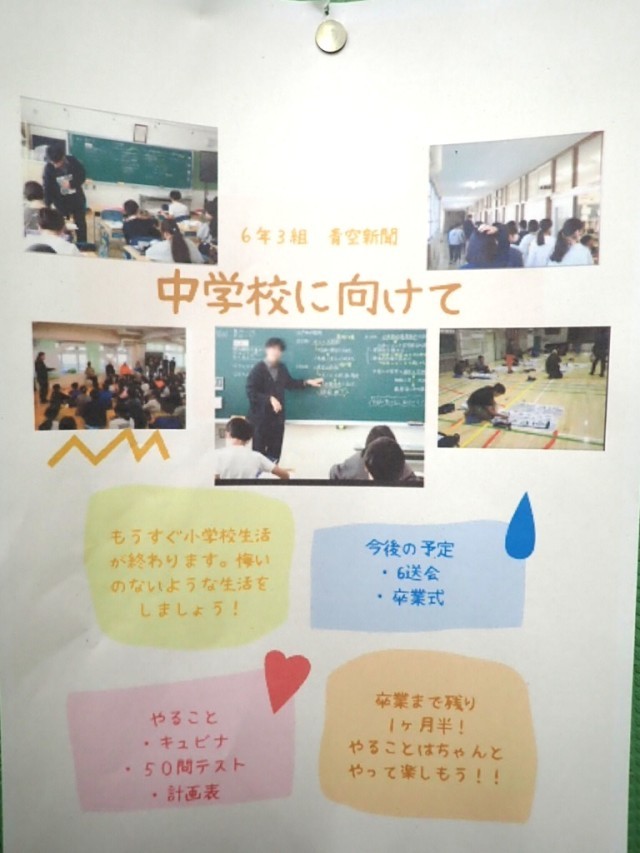 6年3組 青空新聞
中学校に向けて
もうすぐ小学校生活
が終わります。悔い
のないような生活を
しましょう！
今後の予定
・6送会
・卒業式
やること
・キュビナ
・50問テスト
・計画表
卒業まで残り
1ヶ月半！
やることはちゃんと
やって楽しもう！！